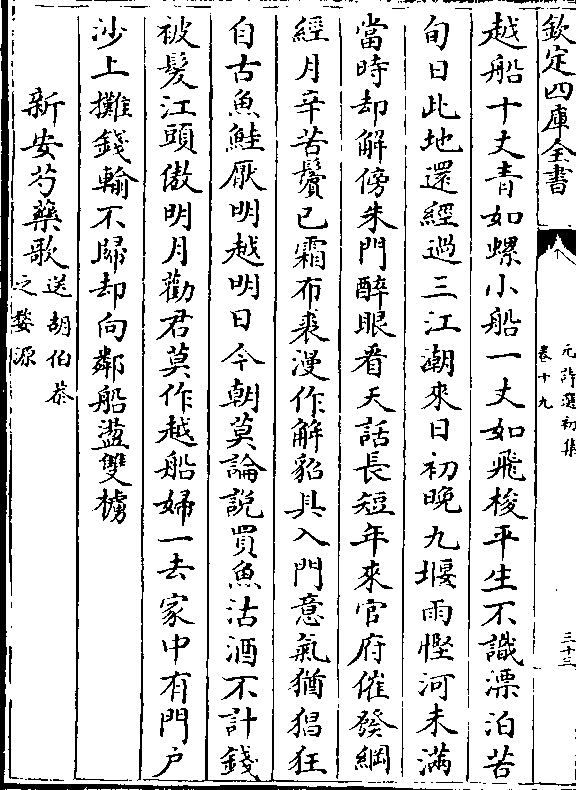 欽定四庫全書
元詩選初集
卷十九
三十三
越船十丈青如螺小船一丈如飛梭平生不識漂泊苦
旬日此地還經過三江潮來日初晚九堰雨慳河未滿
當時却解傍朱門醉眼看天話長短年來官府催發綱
經月辛苦鬢已霜布裘漫作解貂具入門意氣猶猖狂
自古魚鮭厭明越明日今朝莫論說買魚沽酒不計錢
被髮江頭傲明月勸君莫作越船婦一去家中有門户
沙上攤錢輸不歸却向鄰船盪雙櫓
新安芍藥歌送胡伯恭
之婺源